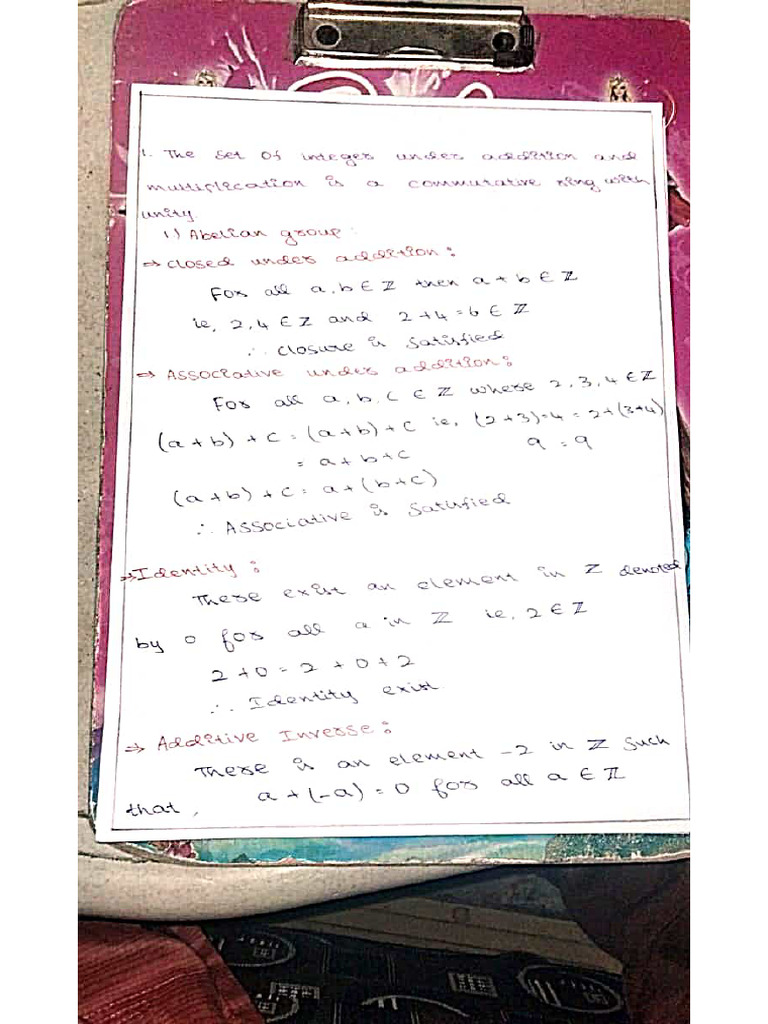 1. The set of integer under addition and
multiplication is a commutative ring with
unity.
1) Abelian group:
⇒ closed under addition:
For all a, b ∈ Z then a + b ∈ Z
ie, 2, 4 ∈ Z and 2+4 = 6 ∈ Z
∴ closure is satisfied
⇒ Associative under addition:
For all a, b, c ∈ Z where 2, 3, 4 ∈ Z
(a+b) + c = (a+b) + c ie, (2+3)+4 = 2+(3+4)
= a+b+c 9 = 9
(a+b) + c = a+(b+c)
∴ Associative is satisfied
⇒ Identity:
There exist an element in Z denoted
by 0 for all a in Z ie, 2 ∈ Z
2+0 = 2 + 0+2
∴ Identity exist
⇒ Additive Inverse:
There is an element -2 in Z such
that, a+(-a) = 0 for all a ∈ Z